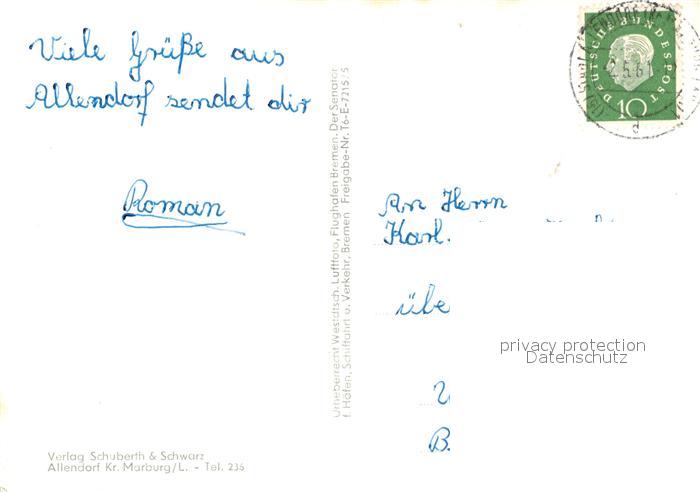 Viele Grüße aus
Allendorf sendet dir
Roman
Verlag Schuberth & Schwarz
Allendorf Kr. Marburg/L. - Tel. 235
Urheberrecht Westdtsch. Luftfoto, Flughafen Bremen. Der Senator
f. Häfen, Schiffahrt u. Verkehr, Bremen Freigabe-Nr. T6-E-7215/5
DEUTSCHE BUNDESPOST
10
An Herrn
Karl.
übe
B.
privacy protection
Datenschutz